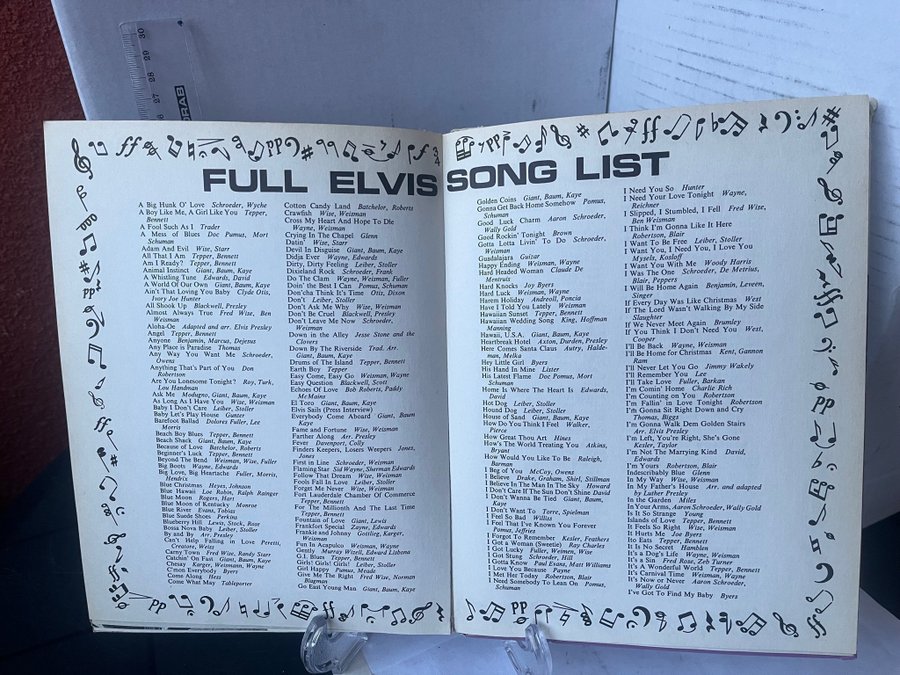 FULL ELVIS SONG LIST
A Big Hunk O' Love Schroeder, Wyche
A Boy Like Me, A Girl Like You Tepper,
Bennett
A Fool Such As I Trader
A Mess of Blues Doc Pomus, Mort
Schuman
Adam And Evil Wise, Starr
All That I Am Tepper, Bennett
Am I Ready? Tepper, Bennett
Animal Instinct Giant, Baum, Kaye
A Whistling Tune Edwards, David
A World Of Our Own Giant, Baum, Kaye
Ain't That Loving You Baby Clyde Otis,
Ivory Joe Hunter
All Shook Up Blackwell, Presley
Almost Always True Fred Wise, Ben
Weisman
Aloha-Oe Adapted and arr. Elvis Presley
Angel Tepper, Bennett
Anyone Benjamin, Marcus, Dejesus
Any Place is Paradise Thomas
Any Way You Want Me Schroeder,
Owens
Anything That's Part of You Don
Robertson
Are You Lonesome Tonight? Roy, Turk,
Lou Handman
Ask Me Modugno, Giant, Baum, Kaye
As Long As I Have You Wise, Weisman
Baby I Don't Care Leiber, Stoller
Baby Let's Play House Gunter
Barefoot Ballad Dolores Fuller, Lee
Morris
Beach Boy Blues Tepper, Bennett
Beach Shack Giant, Baum, Kaye
Because of Love Batchelor, Roberts
Beginner's Luck Tepper, Bennett
Beyond The Bend Weisman, Wise, Fuller
Big Boots Wayne, Edwards
Big Love, Big Heartache Fuller, Morris,
Hendrix
Blue Christmas Heyes, Johnson
Blue Hawaii Leo Robin, Ralph Rainger
Blue Moon Rogers, Hart
Blue Moon of Kentucky Monroe
Blue River Evans, Tobias
Blue Suede Shoes Perkins
Blueberry Hill Lewis, Stock, Rose
Bossa Nova Baby Leiber, Stoller
By and By Arr. Presley
Can't Help Falling in Love Peretti,
Creatore, Weiss
Carny Town Fred Wise, Randy Starr
Catchin' On Fast Giant, Baum, Kaye
Chesay Karger, Weismann, Wayne
C'mon Everybody Byers
Come Along Hess
Come What May Tableporter
Cotton Candy Land Batchelor, Roberts
Crawfish Wise, Weisman
Cross My Heart And Hope To Die
Wayne, Weisman
Crying In The Chapel Glenn
Datin' Wise, Starr
Devil In Disguise Giant, Baum, Kaye
Didja Ever Wayne, Edwards
Dirty, Dirty Feeling Leiber, Stoller
Dixieland Rock Schroeder, Frank
Do The Clam Wayne, Weisman, Fuller
Doin' the Best I Can Pomus, Schuman
Don'cha Think It's Time Otis, Dixon
Don't Leiber, Stoller
Don't Ask Me Why Wise, Weisman
Don't Be Cruel Blackwell, Presley
Don't Leave Me Now Schroeder,
Weisman
Down in the Alley Jesse Stone and the
Clovers
Down By The Riverside Trad. Arr.
Giant, Baum, Kaye
Drums of The Island Tepper, Bennett
Earth Boy Tepper
Easy Come, Easy Go Weisman, Wayne
Easy Question Blackwell, Scott
Echoes Of Love Bob Roberts, Paddy
McMains
El Toro Giant, Baum, Kaye
Elvis Sails (Press Interview)
Everybody Come Aboard Giant, Baum
Kaye
Fame and Fortune Wise, Weisman
Farther Along Arr. Presley
Fever Davenport, Colly
Finders Keepers, Losers Weepers Jones,
Jones
First in Line Schroeder, Weisman
Flaming Star Sid Wayne, Sherman Edwards
Follow That Dream Wise, Weisman
Fools Fall In Love Leiber, Stoller
Forget Me Never Wise, Weisman
Fort Lauderdale Chamber Of Commerce
Tepper, Bennett
For The Millionth And The Last Time
Tepper, Bennett
Fountain of Love Giant, Lewis
Frankfort Special Zayne, Edwards
Frankie and Johnny Gottlieg, Karger,
Weisman
Fun In Acapulco Weisman, Wayne
Gently Murray Wizell, Edward Lisbona
G.I. Blues Tepper, Bennett
Girls! Girls! Girls! Leiber, Stoller
Girl Happy Pomus, Meade
Give Me The Right Fred Wise, Norman
Blagman
Go East Young Man Giant, Baum, Kaye
Golden Coins Giant, Baum, Kaye
Gonna Get Back Home Somehow Pomus,
Schuman
Good Luck Charm Aaron Schroeder,
Wally Gold
Good Rockin' Tonight Brown
Gotta Lotta Livin' To Do Schroeder,
Weisman
Guadalajara Guizar
Happy Ending Weisman, Wayne
Hard Headed Woman Claude De
Mentruis
Hard Knocks Joy Byers
Hard Luck Weisman, Wayne
Harem Holiday Andreoli, Poncia
Have I Told You Lately Weisman
Hawaiian Sunset Tepper, Bennett
Hawaiian Wedding Song King, Hoffman
Manning
Hawaii, U.S.A. Giant, Baum, Kaye
Heartbreak Hotel Axton, Durden, Presley
Here Comes Santa Claus Autry, Halde-
man, Melka
Hey Little Girl Byers
His Hand In Mine Lister
His Latest Flame Doc Pomus, Mort
Schuman
Home Is Where The Heart Is Edwards,
David
Hot Dog Leiber, Stoller
Hound Dog Leiber, Stoller
House of Sand Giant, Baum, Kaye
How Do You Think I Feel Walker,
Pierce
How Great Thou Art Hines
How's The World Treating You Atkins,
Bryant
How Would You Like To Be Raleigh,
Barman
I Beg of You McCoy, Owens
I Believe Drake, Graham, Shirl, Stillman
I Believe In The Man In The Sky Howard
I Don't Care If The Sun Don't Shine David
I Don't Wanna Be Tied Giant, Baum,
Kaye
I Don't Want To Torre, Spielman
I Feel So Bad Willis
I Feel That I've Known You Forever
Pomus, Jeffries
I Forgot To Remember Kesler, Feathers
I Got a Woman (Sweetie) Ray Charles
I Got Lucky Fuller, Weiman, Wise
I Got Stung Schroeder, Hill
I Gotta Know Paul Evans, Matt Williams
I Love You Because Payne
I Met Her Today Robertson, Blair
I Need Somebody to Lean On Pomus,
Schuman
I Need You So Hunter
I Need Your Love Tonight Wayne,
Reichner
I Slipped, I Stumbled, I Fell Fred Wise,
Ben Weisman
I Think I'm Gonna Like It Here
Robertson, Blair
I Want To Be Free Leiber, Stoller
I Want You, I Need You, I Love You
Mysels, Kosloff
I Want You With Me Woody Harris
I Was The One Schroeder, De Metrius,
Blair, Peppers
I Will Be Home Again Benjamin, Leveen,
Singer
If Every Day Was Like Christmas West
If The Lord Wasn't Walking By My Side
Slaughter
If We Never Meet Again Brumley
If You Think I Don't Need You West,
Cooper
I'll Be Back Wayne, Weisman
I'll Be Home for Christmas Kent, Gannon
Ram
I'll Never Let You Go Jimmy Wakely
I'll Remember You Lee
I'll Take Love Fuller, Barkan
I'm Comin' Home Charlie Rich
I'm Counting on You Robertson
I'm Fallin' in Love Tonight Robertson
I'm Gonna Sit Right Down and Cry
Thomas, Biggs
I'm Gonna Walk Dem Golden Stairs
Arr. Elvis Presley
I'm Left, You're Right, She's Gone
Kesler, Taylor
I'm Not The Marrying Kind David,
Edwards
I'm Yours Robertson, Blair
Indescribably Blue Glenn
In My Way Wise, Weisman
In My Father's House Arr. and adapted
by Luther Presley
In the Garden Miles
In Your Arms, Aaron Schroeder, Wally Gold
Is It So Strange Young
Islands of Love Tepper, Bennett
It Feels So Right Wise, Weisman
It Hurts Me Joe Byers
Ito Eats Tepper, Bennett
It Is No Secret Hamblen
It's a Dog's Life Wayne, Weisman
It's a Sin Fred Rose, Zeb Turner
It's A Wonderful World Tepper, Bennett
It's Carnival Time Weisman, Wayne
It's Now or Never Aaron Schroeder,
Wally Gold
I've Got To Find My Baby Byers